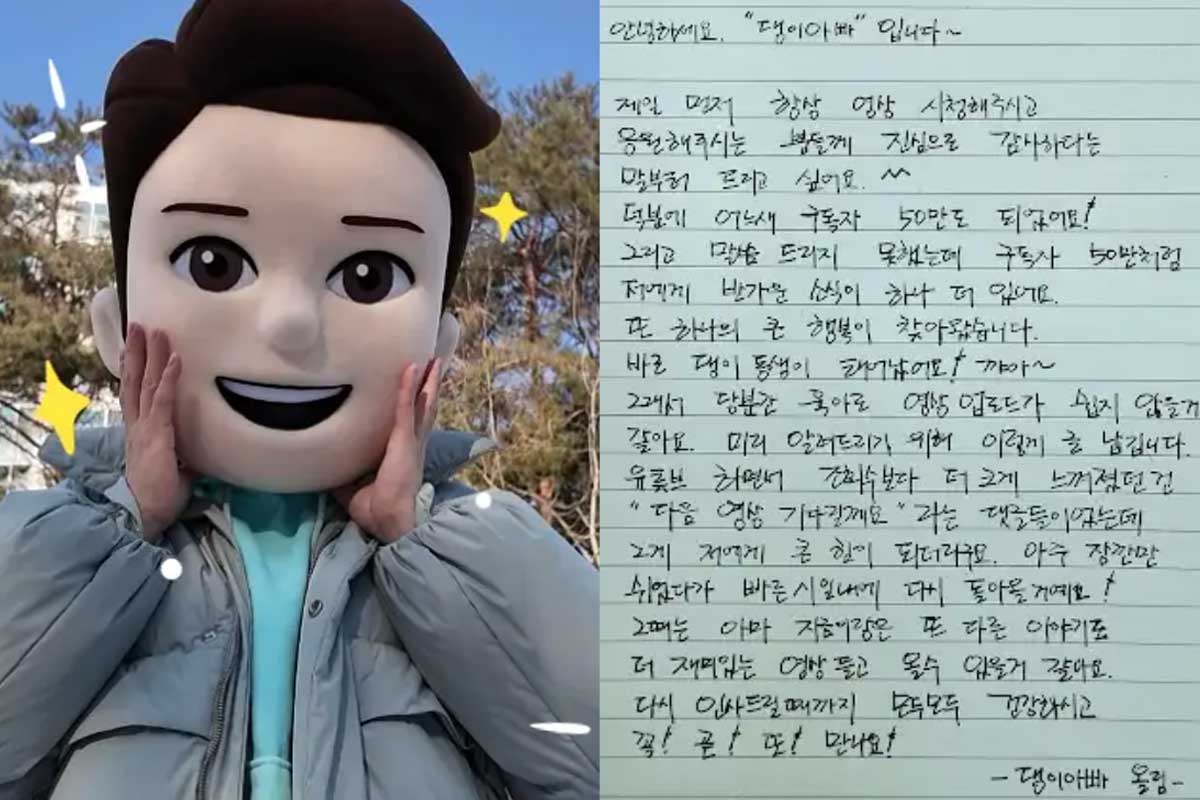 안녕하세요. "댕이아빠" 입니다~
제일 먼저 항상 영상 시청해주시고
응원해주시는 분들께 진심으로 감사하다는
말부터 드리고 싶어요. ^^
덕분에 어느새 구독자 50만도 되었어요!
그리고 말씀 드리지 못했는데 구독자 50만처럼
저에게 반가운 소식이 하나 더 있어요.
또 하나의 큰 행복이 찾아왔습니다.
바로 댕이 동생이 태어났어요! 꺄아~
그래서 당분간 육아로 영상 업로드가 쉽지 않을거
같아요. 미리 알려드리기 위해 이렇게 글 남깁니다.
유튜브 하면서 조회수보다 더 크게 느껴졌던 건
"다음 영상 기다릴께요" 라는 댓글들이었는데
그게 저에게 큰 힘이 되더라구요. 아주 잠깐만
쉬었다가 빠른시일내에 다시 돌아올거예요!
그때는 아마 지금이랑은 또 다른 이야기로
더 재미있는 영상 들고 올수 있을거 같아요.
다시 인사드릴때까지 모두모두 건강하시고
꼭! 곧! 또! 만나요!
- 댕이아빠 올림 -